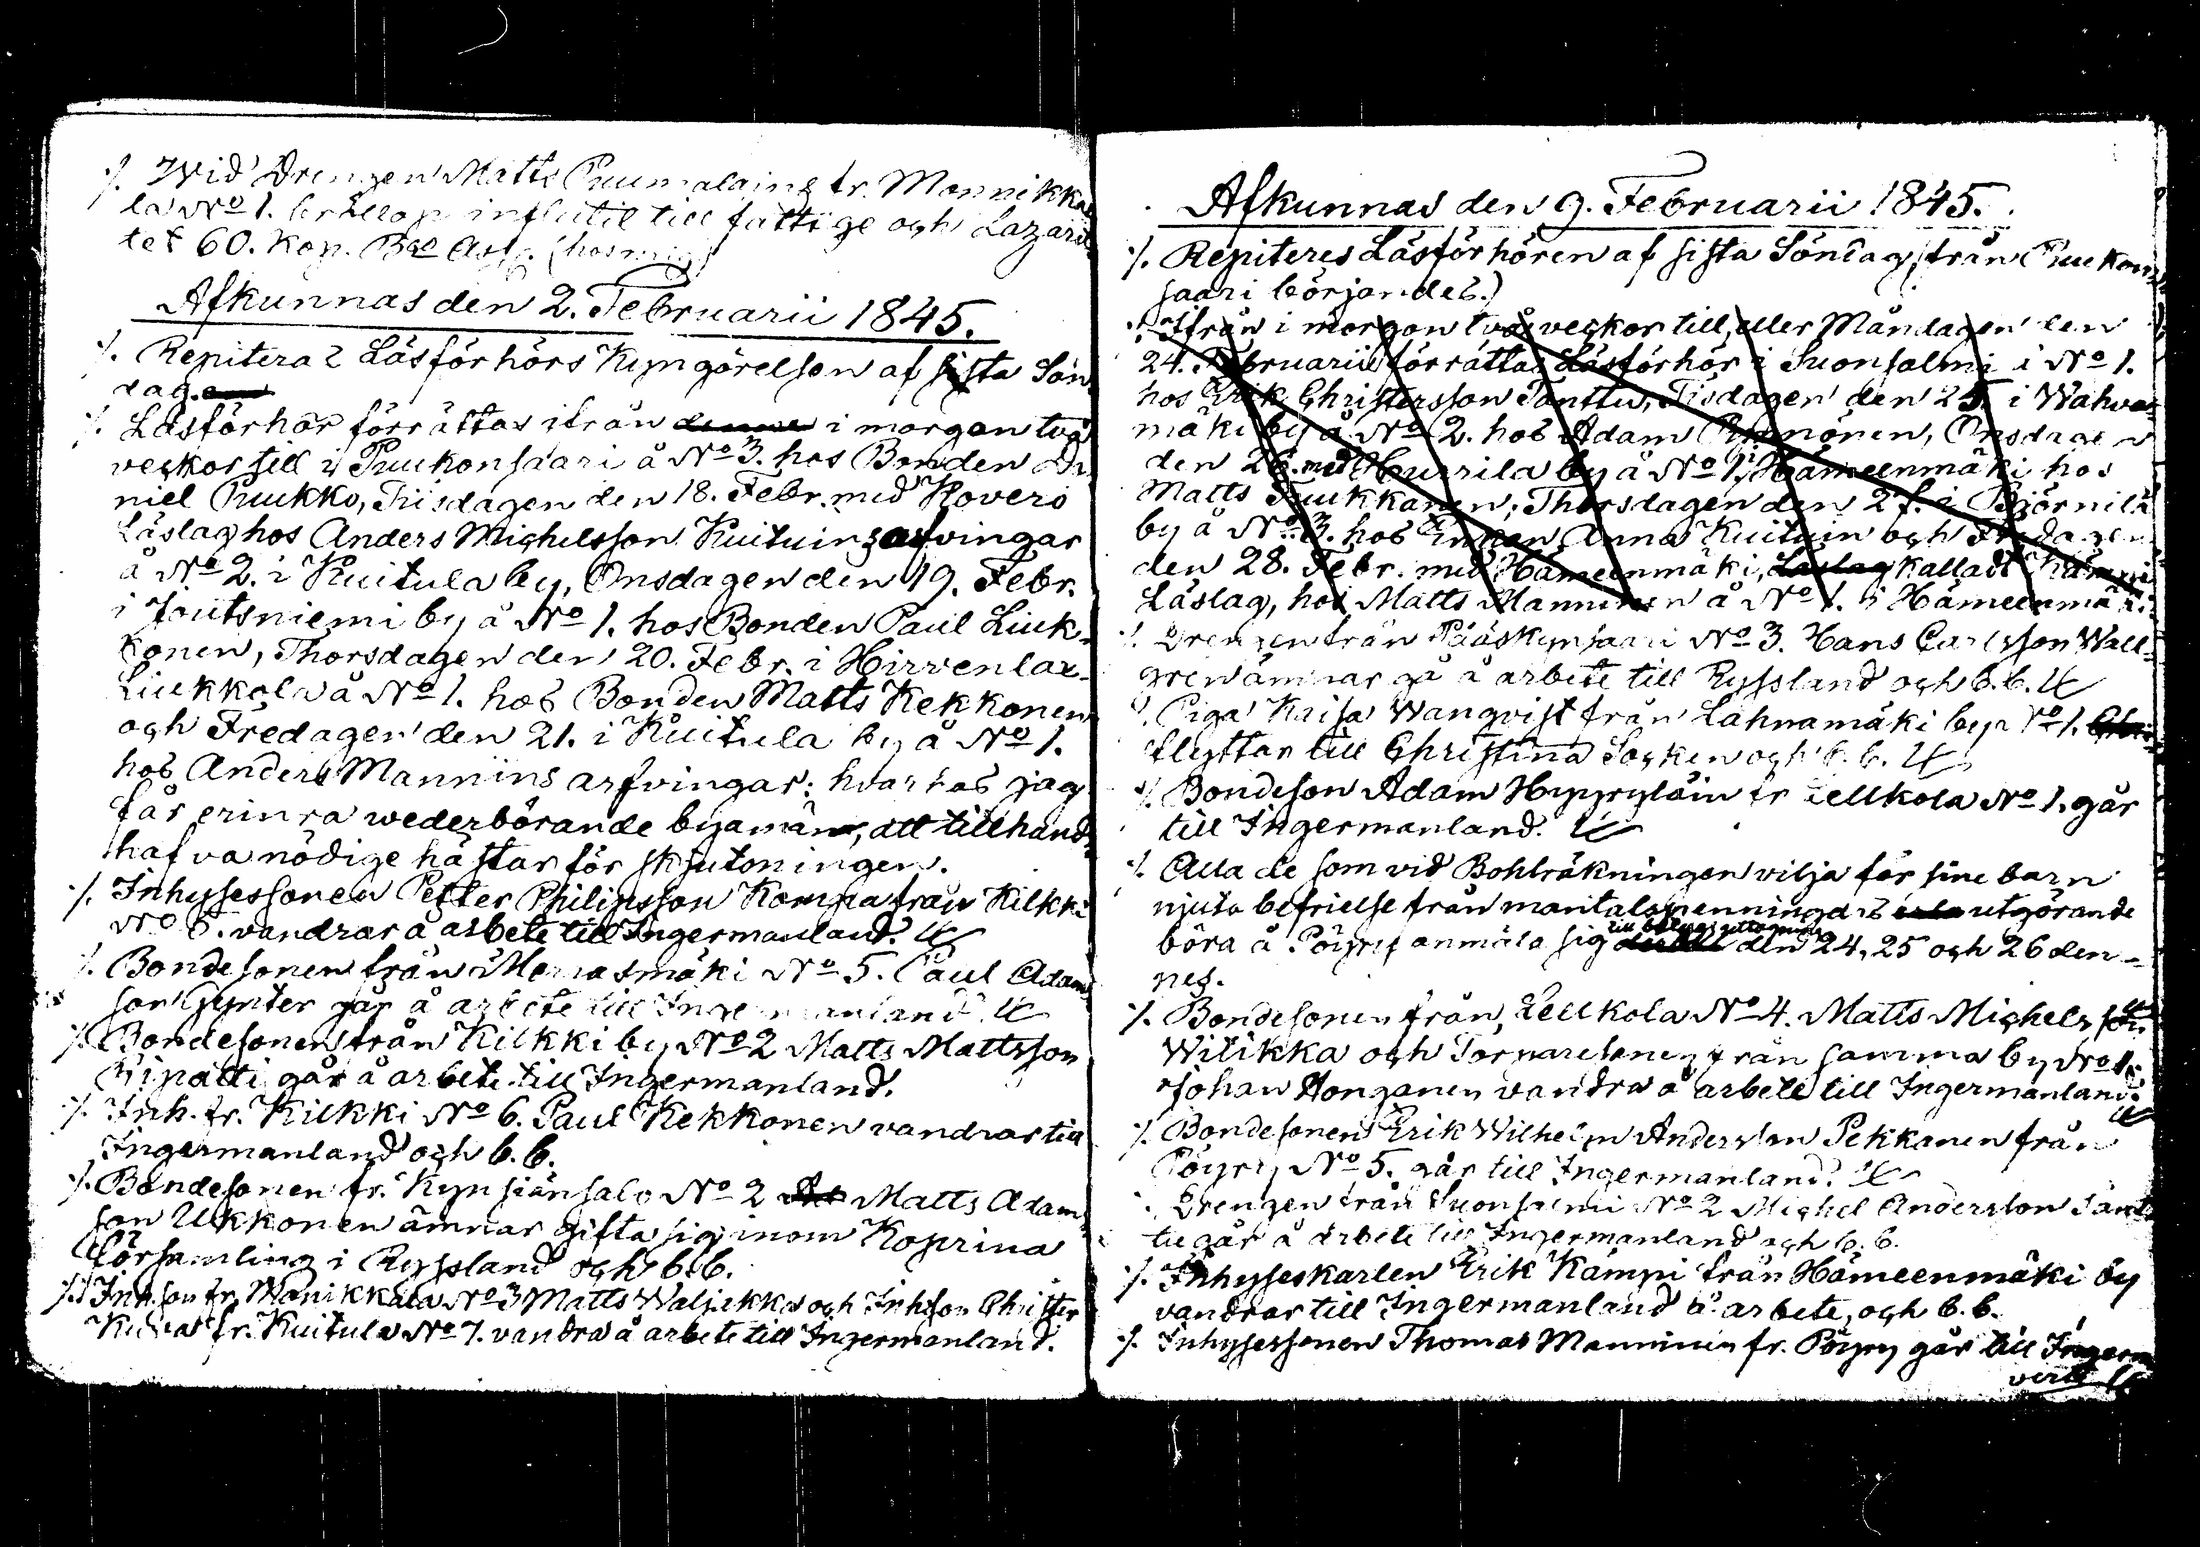 ⁒. Wid Drengen Matts Puumalains fr. Monnikka
la No 1. bröllop influtit till fattige och Lazaret
tet 60. Kop. Bco Ass. (hos mig)
Afkunnas den 2. Februarii 1845.
⁒. Repiteras Läsförhörs Kungörelsen af sista Sön
dag.
⁒. Läsförhör förrättas ifrån i morgon två
veckor till i Puukonsaari å No 3. hos Bonden Da
niel Puukko, Tisdagen den 18. Febr. med Hovero
Läslag hos Anders Michelsson Kuituins arfvingar
å No 2. i Kuitula by, Onsdagen den 19. Febr.
i Joutsniemi by å No 1. hos Bonden Paul Liuk-
konen, Thorsdagen den 20. Febr. i Hirvenlax-
Liukkola å No 1. hos Bonden Matts Kekkonen
och Fredagen den 21. i Kuitula by å No 1.
hos Anders Mannins arfvingar: hvarhos jag
får erinra wederbörande byamän, att tillhands
hafva nödige hästar för skjutsningen.
⁒. Inhysessonen Petter Philipsson Kompa från Kilkki
No 6. vandrar å arbete till Ingermanland.
⁒. Bondesonen från Monasmäki No 5. Paul Adams
son Gynter går å arbete till Ingermanland
⁒. Bondesonen från Kilkki by No 2 Matts Mattsson
Wipatti går å arbete till Ingermanland.
⁒. Inh. fr. Kilkki No 6. Paul Kekkonen vandrar till
Ingermanland och b. b.
⁒. Bondesonen fr. Kynsiänsalo No 2 Matts Adams
son Ukkonen ämnar gifta sig inom Koprina
Församling i Ryssland och b. b.
⁒. Inh. son fr. Manikkala No 3 Matts Waljakka och Inh. son Christer
Kurva fr. Kuitula No 7. vandra å arbete till Ingermanland.
Afkunnas den 9. Februarii 1845.
⁒. Repiteres Läsförhören af sista Söndag, från Puukon
saari börjandes.)
⁒. Ifrån i morgon två veckor till, eller Måndagen den
24. Februarii förrättas Läsförhör i Suonsalmi å No 1.
hos Erik Christersson Tanttu, Tisdagen den 25. i Wahva
mäki by å No 2. hos Adam, Onsdagen
den 26. med Hurrila by å No 1. i Hämeenmäki hos
Matts Tuukkanen, Thorsdagen den 27. i Björnilä
by å No 3. hos Enkan Anna Kuituin och Fredagen
den 28. Febr. med Hämeenmäki, Läslag kalladt
Läslag, hos Matts Manninen å No 1. i Hämeenmäki.
⁒. Drengen från Pääskynsaari No 3. Hans Carlsson Wall-
gren ämnar gå å arbete till Ryssland och b. b.
⁒. Piga Kaisa Wanqvist från Lahnamäki by No 1.
flyttar till Christina Socken och b. b.
⁒. Bondeson Adam Hyyryläin fr. Leukola No 1. går
till Ingermanland.
⁒. Alla de som vid Bohlräkningen vilja för sine barn
njuta befrielse från mantalspenningars utgörande
böra å Pöyry anmäla sig den 24, 25 och 26 den-
nes.
⁒. Bondesonen från, Leukola No 4. Matts Michelsson
Witikka och Torparesonen från samma by No 1.
Johan Honganen vandra å arbete till Ingermanland.
⁒. Bondesonen Erik Wilhelm Andersson Pekkanen från
Pöyry No 5. går till Ingermanland.
⁒. Drengen från Suonsalmi No 2 Michel Andersson Tant
tu går å arbete till Ingermanland och b. b.
⁒. Inhyseskarlen Erik Kämpi från Hämeenmäki by
vandrar till Ingermanland å arbete, och b. b.
⁒. Inhysessonen Thomas Manninen fr. Pöyry går till Ingerm